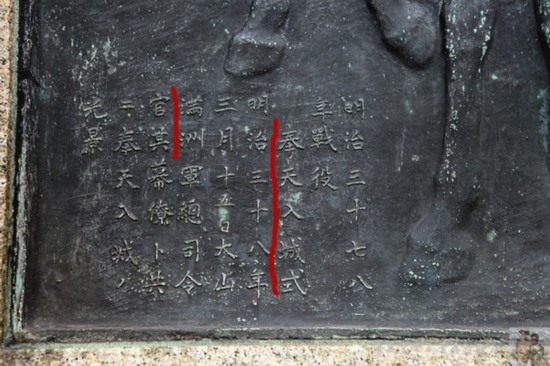 明治三十七八
年戰役
奉天入城式
明治三十八年
三月十五日大山
滿洲軍總司令
官其幕僚ト共
ニ奉天入城ノ
光景